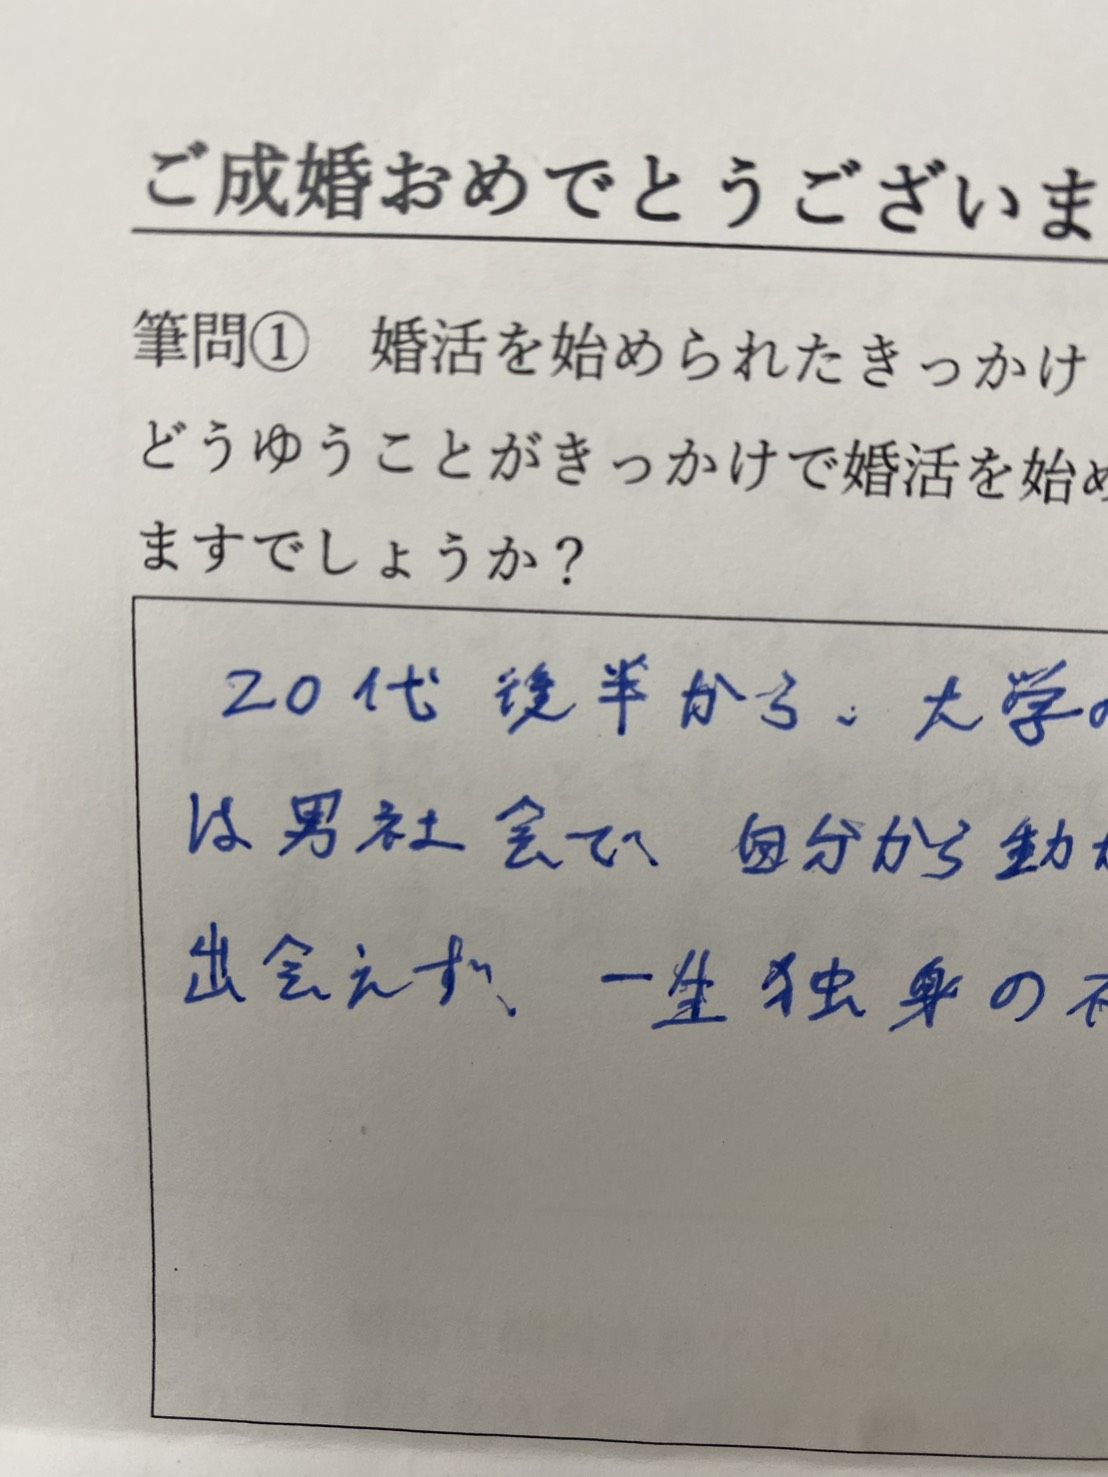 ご成婚おめでとうございま
筆問① 婚活を始められたきっかけ
どうゆうことがきっかけで婚活を始め
ますでしょうか？
20代後半から、大学の
は男社会で、自分から動か
出会えず、一生独身の不